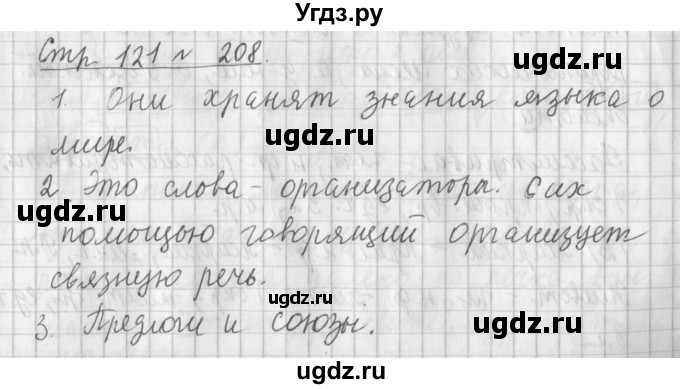 Угдз.ру
Стр. 121 № 208.
ugdz.ru
1. Они хранят знания языка о
ugdz.ru
мире.
ugdz.ru
2 Это слова - организаторы. С их
ugdz.ru
помощью говорящий организует
связную речь.
ugdz.ru
3. Предлоги и союзы.
ugdz.ru
ugdz.ru